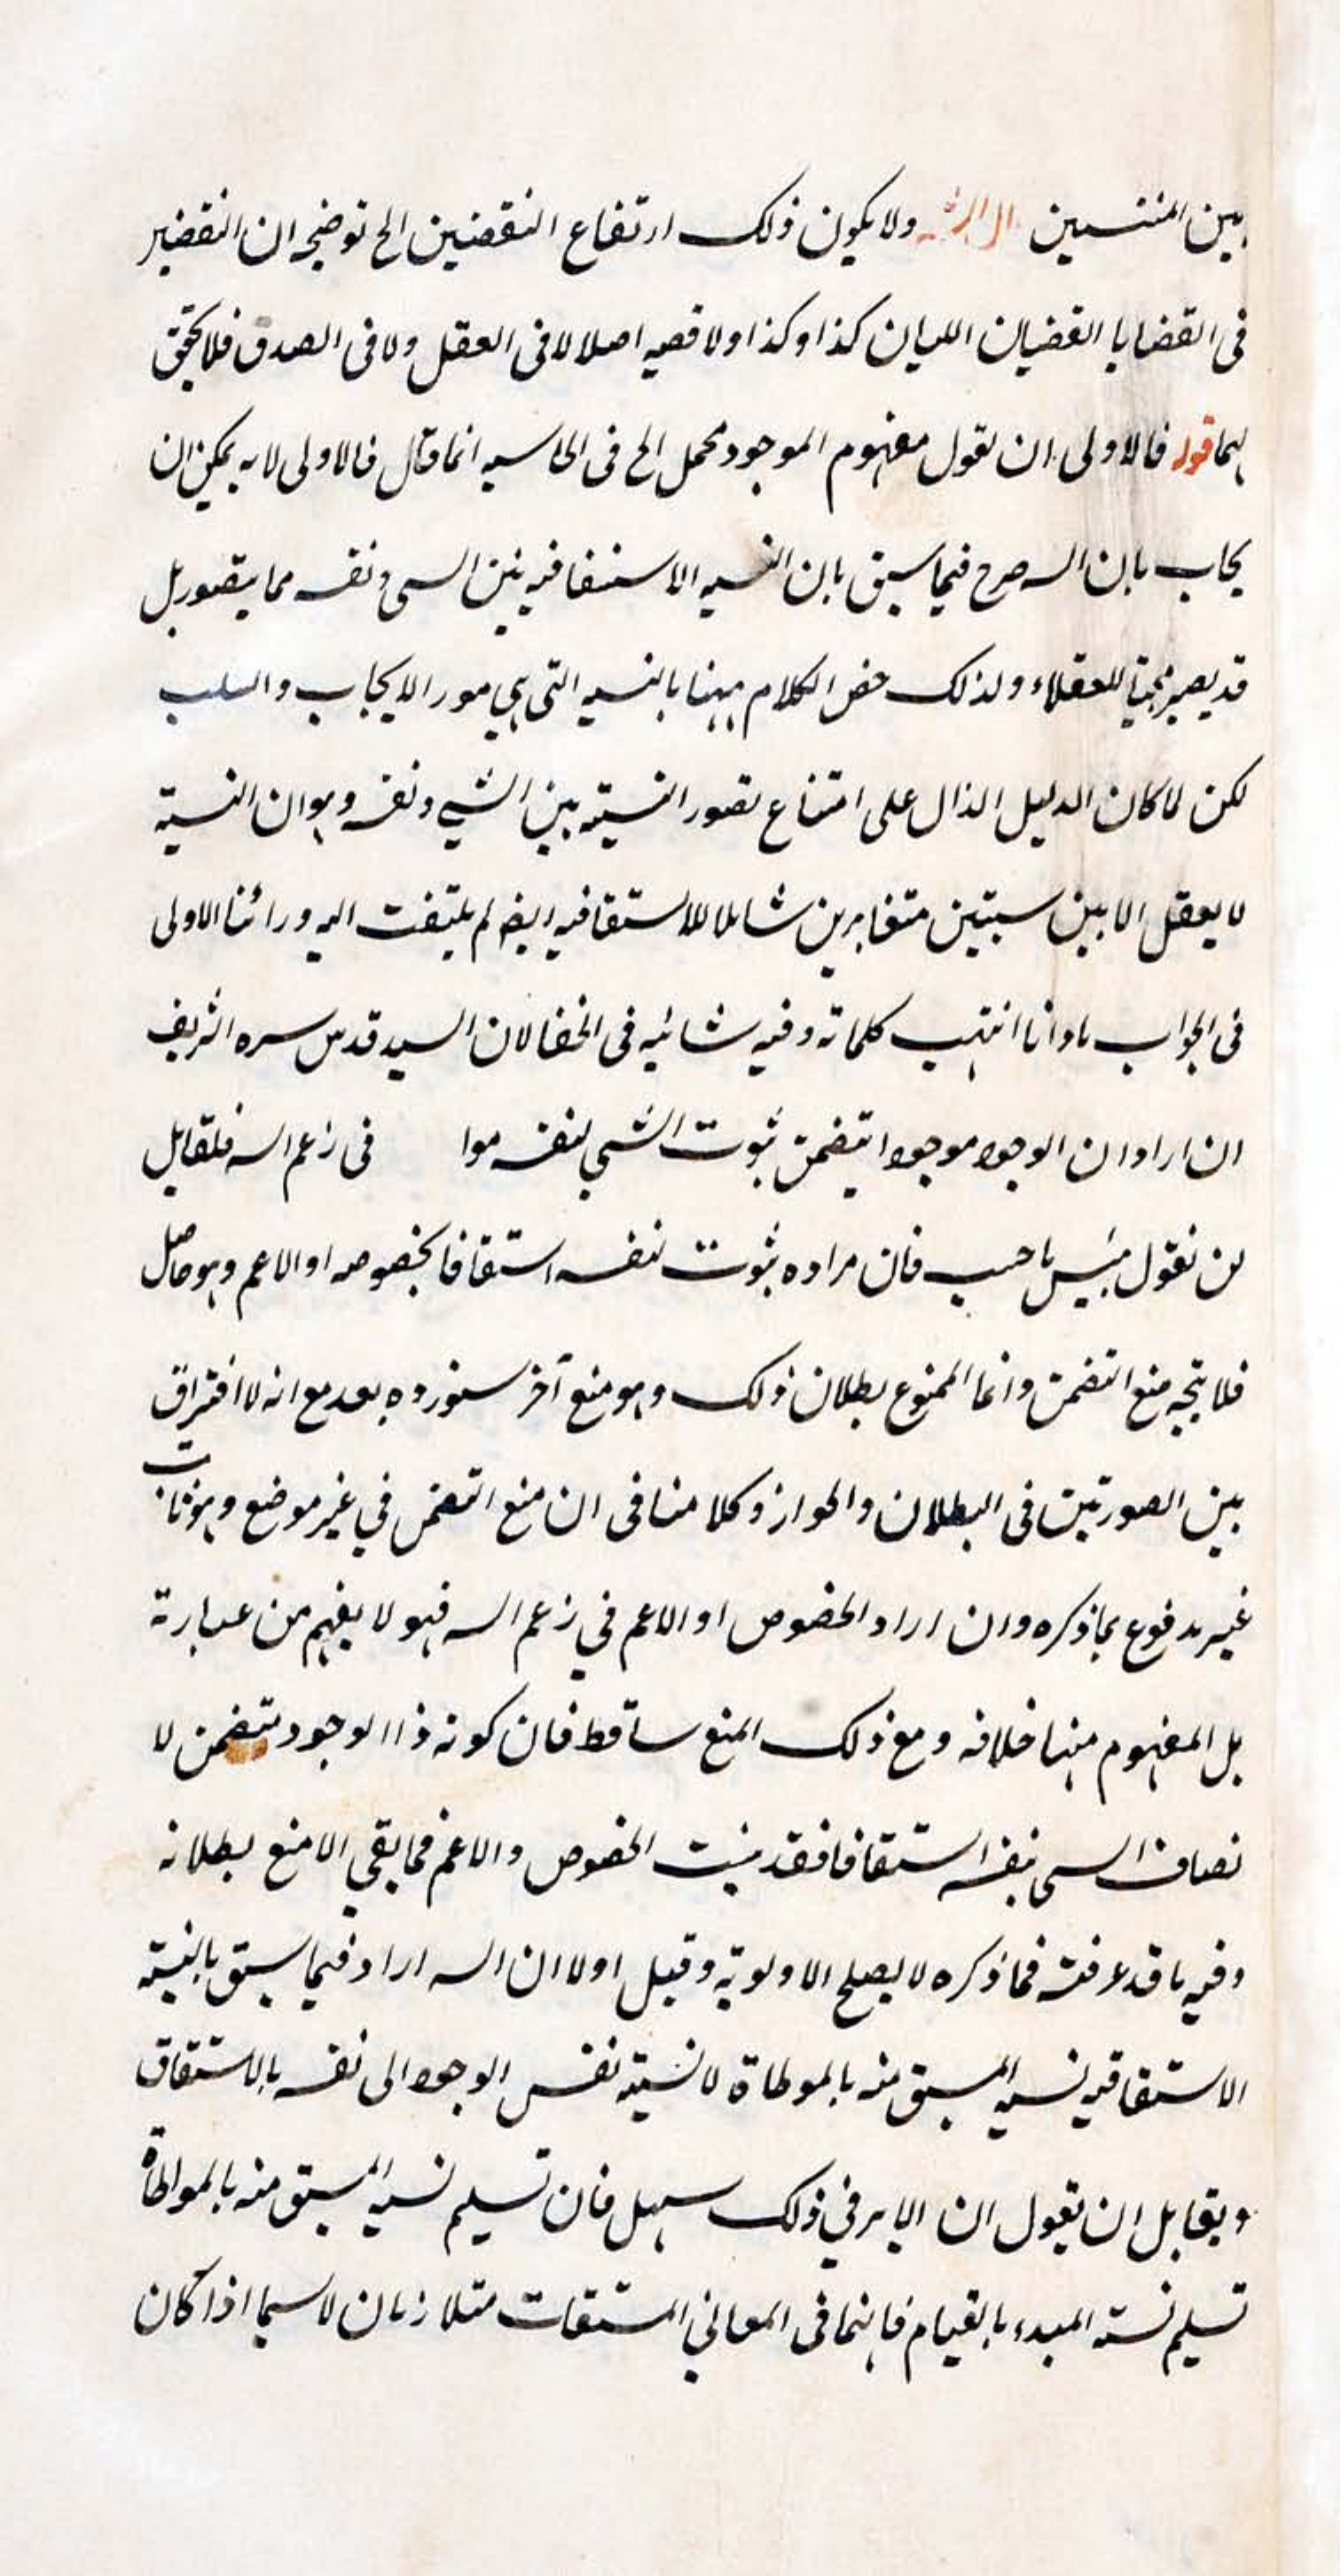 بين المنتسبين قال الشـ ولا يكون ذلك ارتفاع النقضين الخ توضيحه ان النقضين
فى القضايا القضيان اللتيان كذا وكذا ولا قصيه اصلا لا فى العقل ولا فى الصدق فلا يحقق
لهما قوله فالاولى ان نقول مفهوم الموجود محمل الخ فى الحاسيه انما قال فالاولى لانه يمكن ان
يجاب بان الـه صرح فيما سبق بان النسبه الاستقاقيه بين السى ونفسه مما يتصور بل
قد يصير للعقلاء ولذلك خص الكلام ههنا بالنسبه التى هي مورد الايجاب والسلب
لكن لما كان الدليل الدال على امتناع تصور النسبته بين الشي ونفسه وهو ان النسبة
لا يعقل الا بين سبتين متغايرين شاملا للاستقاقيه ايضا لم يلتفت اليه ورائنا الاولى
فى الجواب انتهت كلماته وفيه شائبه فى الخفا لان السيد قدس سره الشريف
ان اراد ان الوجود موجودا يتضمن ثبوت الشي لنفسه موا فى زعم الـه فلقايل
ان نقول ليس باحسب فان مراده ثبوت نفسه استقاقا بخصوصه او الاعم وهو حاصل
فلا يتجه منع التضمن وانما الممنوع بطلان ذلك وهو منع آخر سنورده بعد مع انه لا افتراق
بين الصورتين فى البطلان والجواز وكلامنا فى ان منع التضمن في غير موضع وهو ثابت
غير مدفوع بما ذكره وان اراد الخصوص او الاعم في زعم الـه فهو لا يفهم من عبارته
بل المفهوم منها خلافه ومع ذلك المنع ساقط فان كونه ذا الوجود متضمن لا
تصاف السى بنفسه استقاقا فقد ثبت الخصوص والاعم فما بقي الا منع بطلانه
وفيه ما قد عرفت فما ذكره لا يصلح الاولوية وقيل اولا ان الـه اراد فيما سبق بالنسبة
الاستقاقيه نسبه المستق منه بالموطاة لا نسبته نفس الوجود الى نفسه بالاستقاق
ويقابل ان يقول ان الامر في ذلك سهل فان تسليم نسبه المستق منه بالمواطاة
تسليم نسبته المبدء بالقيام فانهما فى المعاني المستقات متلازمان لا سيما اذا كان